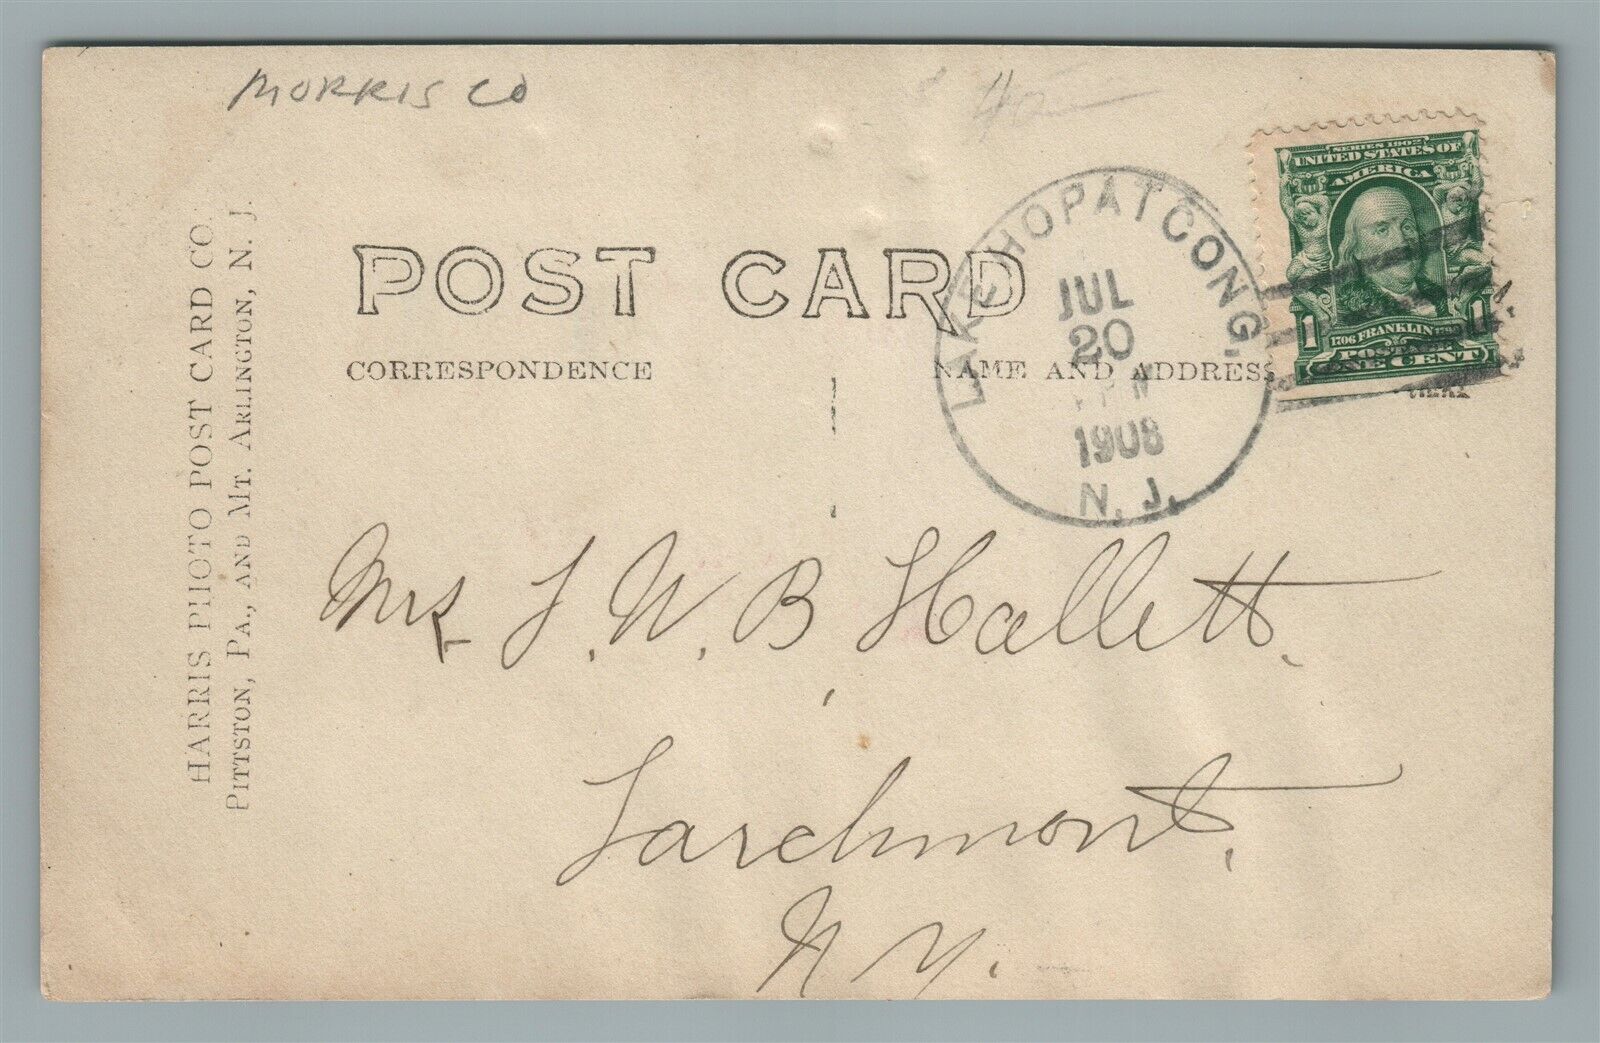 MORRIS CO
HARRIS PHOTO POST CARD CO.
PITTSTON, PA., AND MT. ARLINGTON, N. J.
POST CARD
CORRESPONDENCE
NAME AND ADDRESS
LAKE HOPATCONG,
JUL
20
1908
N. J.
SERIES 1902
UNITED STATES OF
AMERICA
1 1706 FRANKLIN 1790 1
POSTAGE
ONE CENT
Mrs J. W. B Hallett.
Larchmont.
N Y.